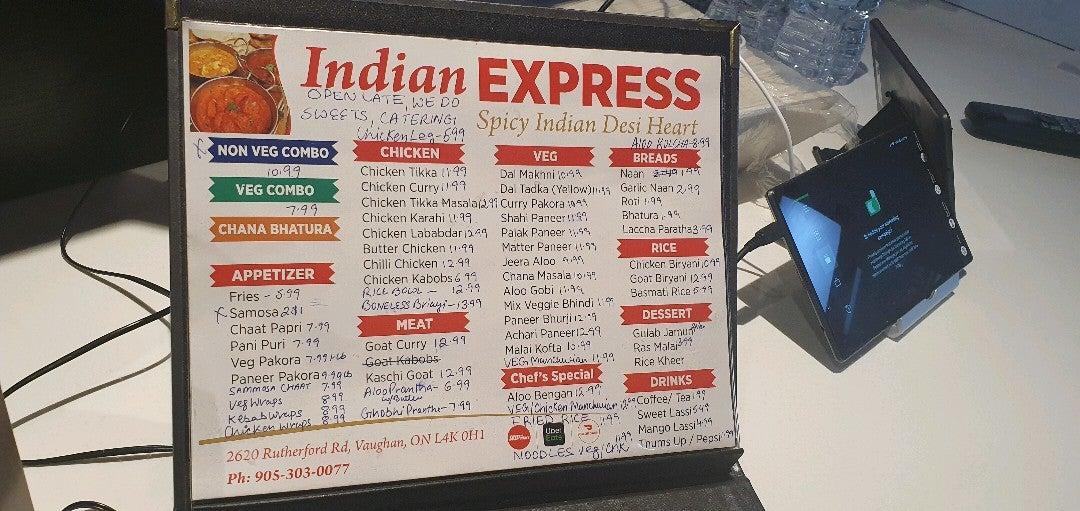 Indian EXPRESS
OPEN LATE, WE DO
SWEETS, CATERING
Spicy Indian Desi Heart
NON VEG COMBO
10.99
VEG COMBO
7.99
CHANA BHATURA
APPETIZER
Fries - 5.99
Samosa 2$1
Chaat Papri 7.99
Pani Puri 7.99
Veg Pakora 7.99 1Lb
Paneer Pakora 9.99 Lb
SAMMOSA CHAAT 7.99
Veg Wraps 8.99
Kebab Wraps 8.99
Chicken Wraps 8.99
Chicken Leg - 6.99
CHICKEN
Chicken Tikka 11.99
Chicken Curry 11.99
Chicken Tikka Masala 12.99
Chicken Karahi 11.99
Chicken Lababdar 12.99
Butter Chicken 11.99
Chilli Chicken 12.99
Chicken Kabobs 6.99
RICE BOWL - 12.99
BONELESS Briayi - 13.99
MEAT
Goat Curry 12.99
Goat Kabobs
Kaschi Goat 12.99
Aloo Prantha - 6.99
w/Butter
Ghobhi Prantha - 7.99
VEG
Dal Makhni 10.99
Dal Tadka (Yellow) 11.99
Curry Pakora 10.99
Shahi Paneer 11.99
Palak Paneer 11.99
Matter Paneer 11.99
Jeera Aloo 9.99
Chana Masala 10.99
Aloo Gobi 11.99
Mix Veggie Bhindi 11.99
Paneer Bhurji 12.99
Achari Paneer 12.99
Malai Kofta 10.99
VEG Manchurian 11.99
Chef's Special
Aloo Bengan 12.99
VEG/Chicken Manchurian 12.99
FRIED RICE 11.99
NOODLES Veg/CHK 11.99
Aloo KULCHA - 8.99
BREADS
Naan 1.99
Garlic Naan 2.99
Roti 1.99
Bhatura 1.99
Laccha Paratha 3.99
RICE
Chicken Biryani 10.99
Goat Biryani 12.99
Basmati Rice 5.99
DESSERT
Gulab Jamun
Ras Malai 3.99
Rice Kheer
DRINKS
Coffee/ Tea 1.99
Sweet Lassi
Mango Lassi 4.99
Thums Up / Pepsi
Uber
Eats
2620 Rutherford Rd, Vaughan, ON L4K 0H1
Ph: 905-303-0077